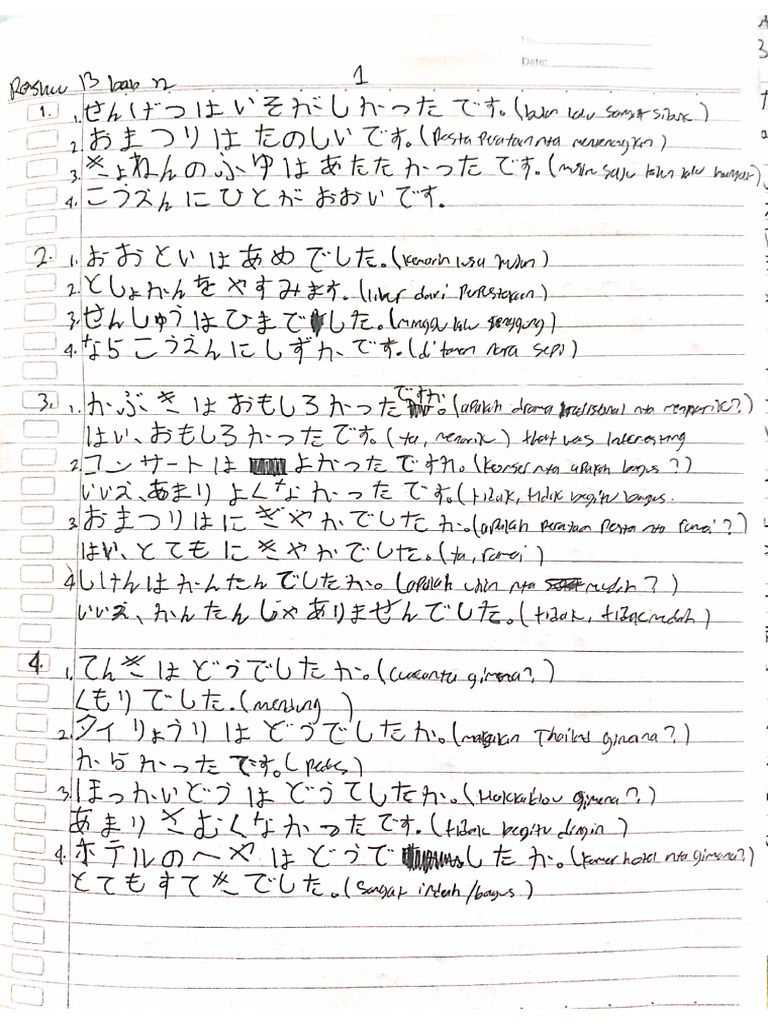 No:
Date:
Rashu B bab 12
1
1. 1. せんげつはいそがしかったです。(bulan lalu sangat sibuk)
2. おまつりはたのしいです。(Pesta Perataan nta menyenangkan)
3. きょねんのふゆはあたたかったです。(musim salju tahun lalu hangat)
4. こうえんにひとがおおいです.
2. 1. おおといはあめでした。(kemarin lusa hujan)
2. としょかんをやすみます。(libur dari Perpustakaan)
3. せんしゅうはひまでした。(minggu lalu senggang)
4. ならこうえんにしずかです。(di taman nara sepi)
3. 1. かぶきはおもしろかったですか。(apakah drama tradisional nta menarik?)
はい、おもしろかったです。(ta, menarik) that was interesting
2 コンサートはよかったですか。(konser nta apakah bagus?)
いいえ、あまりよくなかったです。(tidak, tidak begitu bagus.
3 おまつりはにぎやかでしたか。(apakah perataan Pesta nta ramai?)
はい、とてもにぎやかでした。(ta, ramai)
4 しけんはかんたんでしたか。(apakah ujian nta mudah?)
いいえ、かんたんじゃありませんでした。(tidak, tidak mudah)
4. 1. てんきはどうでしたか。(cuacanta gimana?)
くもりでした.(mendung)
2. タイりょうりはどうでしたか。(makanan Thailand gimana?)
からかったです。(pedes)
3. ほっかいどうはどうてしたか。(Hokkaidou gimana?)
あまりさむくなかったです。(tidak begitu dingin)
4. ホテルのへやはどうでしたか。(kamar hotel nta gimana?)
とてもすてきでした。(Sangat indah/bagus)